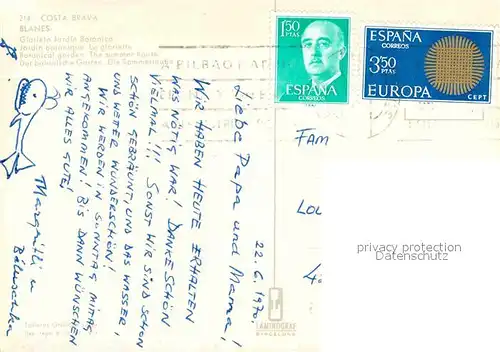 218 COSTA BRAVA
BLANES
Glorieta Jardín Botánico
Jardin botanique. La gloriette
Botanical garden. The summer house
Der botanische Garten. Die Sommerlaube
1'50
PTAS
ESPAÑA
CORREOS
ESPAÑA
CORREOS
3'50
PTAS
EUROPA
CEPT
BILBAO
22.6.1970
Liebe Papa und Mama!
Wir haben heute erhalten
was nötig war! Danke schön
vielmal!!! Sonst wir sind schon
schön gebräunt, und das Wasser,
uns weter wunderschön!
Wir werden in Sonntag mitag
antekommen! Bis dann wünschen
wir alles gute!
Margritli u
Baluschka
FAM
LOU
privacy protection
watermarks
LAMINOGRAF
BARCELONA